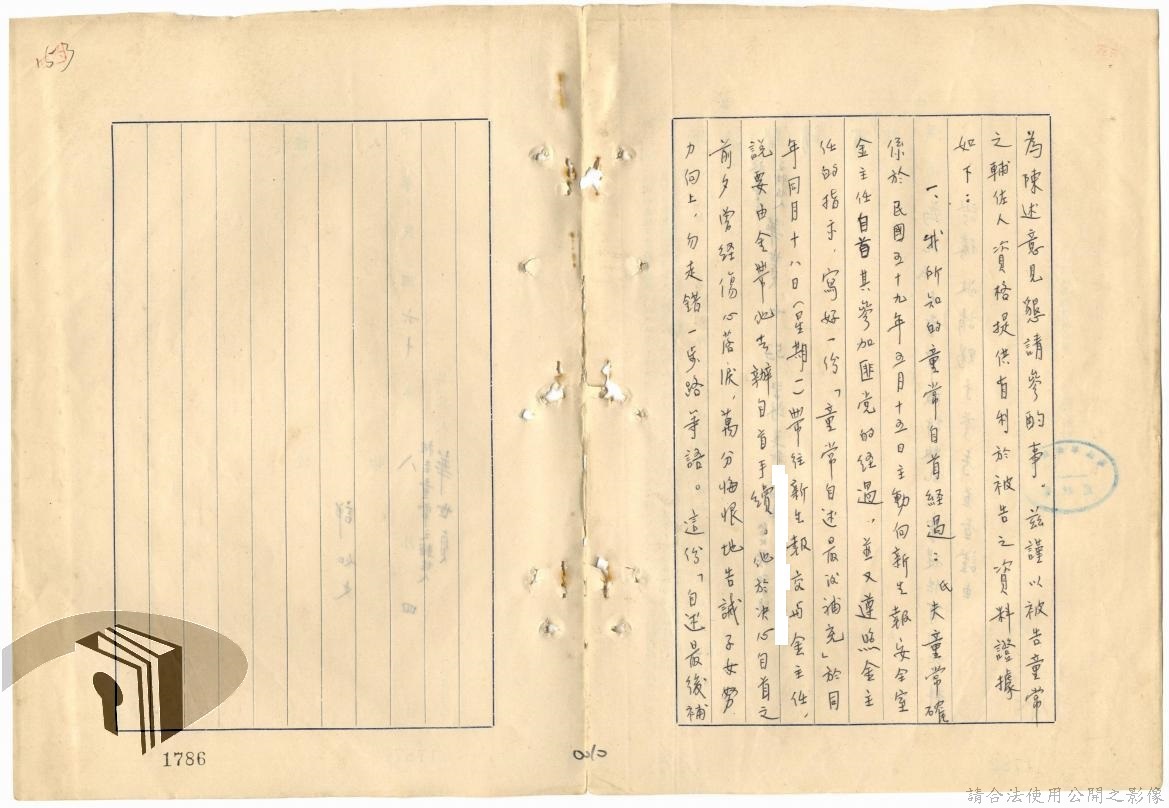 為陳述意見懇請參酌事。茲謹以被告童常
之輔佐人資格提供有利於被告之資料證據
如下：
一、我所知的童常自首經過：氏夫童常確
係於民國五十九年五月十五日主動向新生報安全室
金主任自首其參加匪党的經過，並又遵照金主
任的指示，寫好一份「童常自述最後補充」於同
年同月十八日（星期一）帶往新生報交与金主任，
說要由金帶他去辦自首手續。他於决心自首之
前夕曾經傷心落淚，萬分悔恨地告誡子女努
力向上，勿走錯一步路等語。這份「自述最後補
1786
請合法使用公開之影像